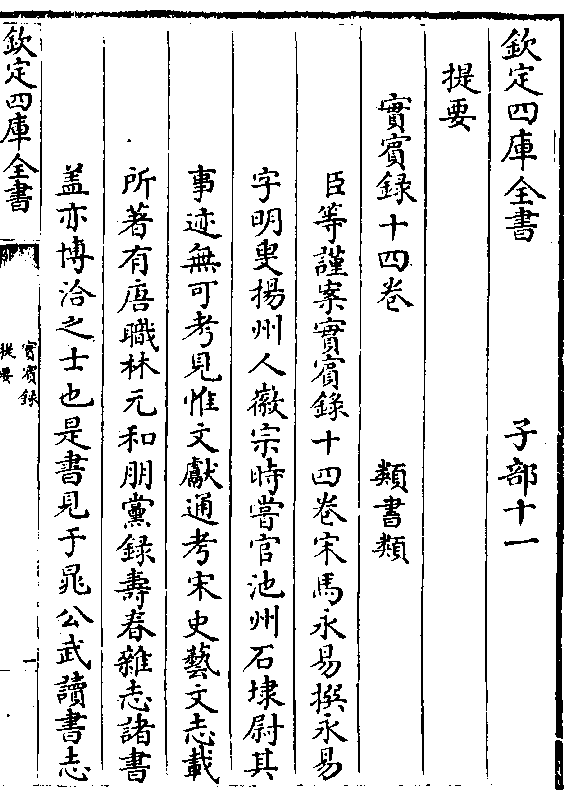 欽定四庫全書 子部十一
提要
實賓録十四卷 類書類
臣等謹案實賓錄十四卷宋馬永易撰永易
字明叟揚州人徽宗時嘗官池州石埭尉其
事迹無可考見惟文獻通考宋史藝文志載
所著有唐職林元和朋黨録壽春雜志諸書
盖亦博洽之士也是書見于晁公武讀書志
欽定四庫全書
實賓録
提要
一